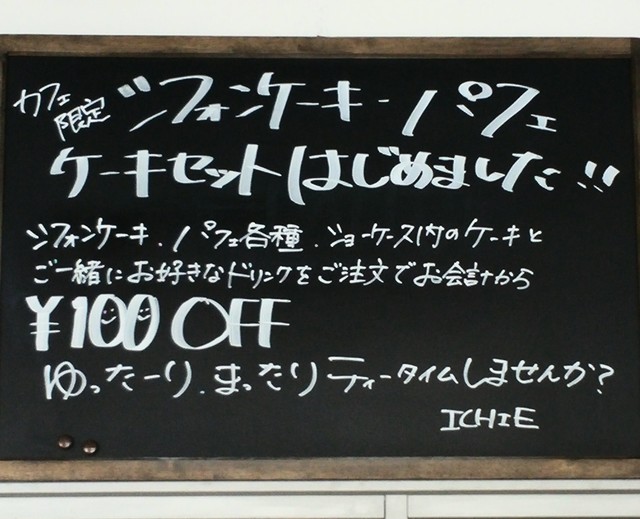 カフェ限定
シフォンケーキ・パフェ
ケーキセットはじめました!!
シフォンケーキ、パフェ各種、ショーケース内のケーキと
ご一緒にお好きなドリンクをご注文でお会計から
¥100 OFF
ゆったーり、まったりティータイムしませんか?
ICHIE